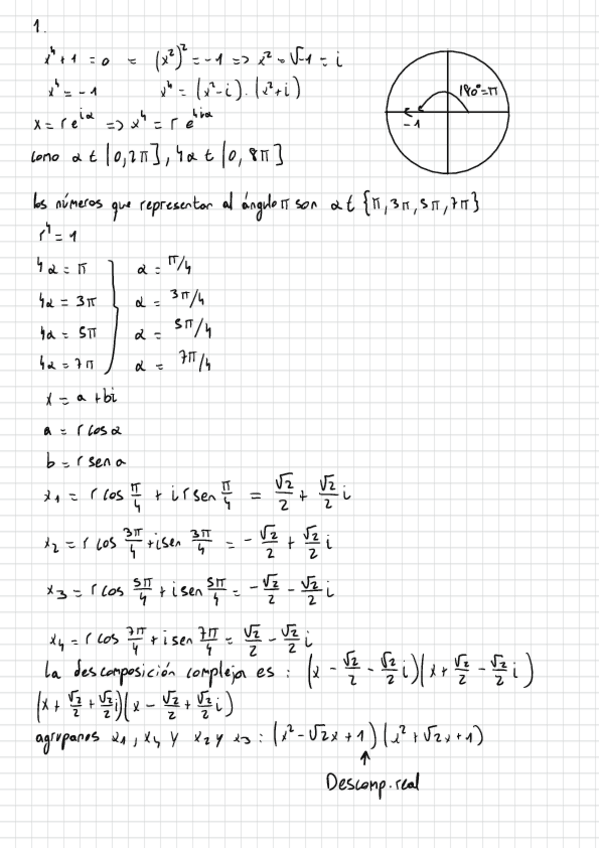 1.
x⁴+1 = 0 = (x²)² = -1 => x² = √-1 = i
x⁴ = -1 x⁴ = (x²-i).(x²+i)
180° = π
-1
x = r e^{iα} => x⁴ = r e^{4iα}
como α t [0,2π], 4α t [0, 8π]
los números que representan al ángulo π son α t {π, 3π, 5π, 7π}
r⁴ = 1
4α = π α = π/4
4α = 3π α = 3π/4
4α = 5π α = 5π/4
4α = 7π α = 7π/4
x = a + bi
a = r cos α
b = r sen α
x₁ = r cos π/4 + i r sen π/4 = √2/2 + √2/2 i
x₂ = r cos 3π/4 + i sen 3π/4 = -√2/2 + √2/2 i
x₃ = r cos 5π/4 + i sen 5π/4 = -√2/2 - √2/2 i
x₄ = r cos 7π/4 + i sen 7π/4 = √2/2 - √2/2 i
La descomposición compleja es : (x - √2/2 - √2/2 i)(x + √2/2 - √2/2 i)
(x + √2/2 + √2/2 i)(x - √2/2 + √2/2 i)
agrupamos x₁, x₄ y x₂ y x₃ : (x² - √2x + 1)(x² + √2x + 1)
↑
Descomp. real